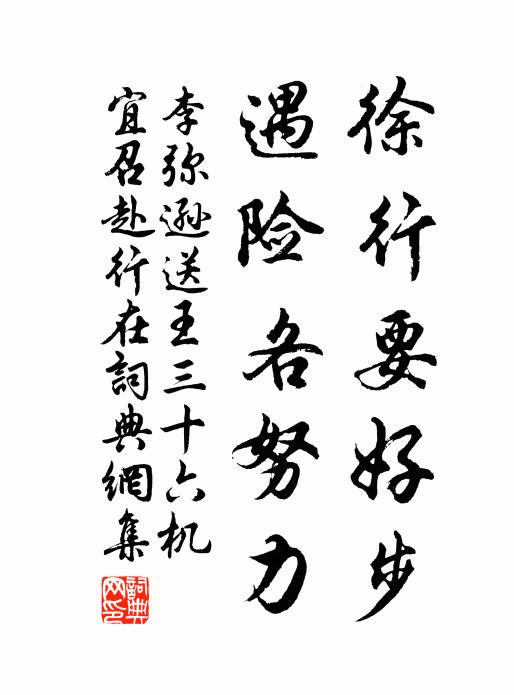 徐行要好步
遇险各努力
李弥逊送王三十六机
宜召赴行在詞典網集
詞典
网印